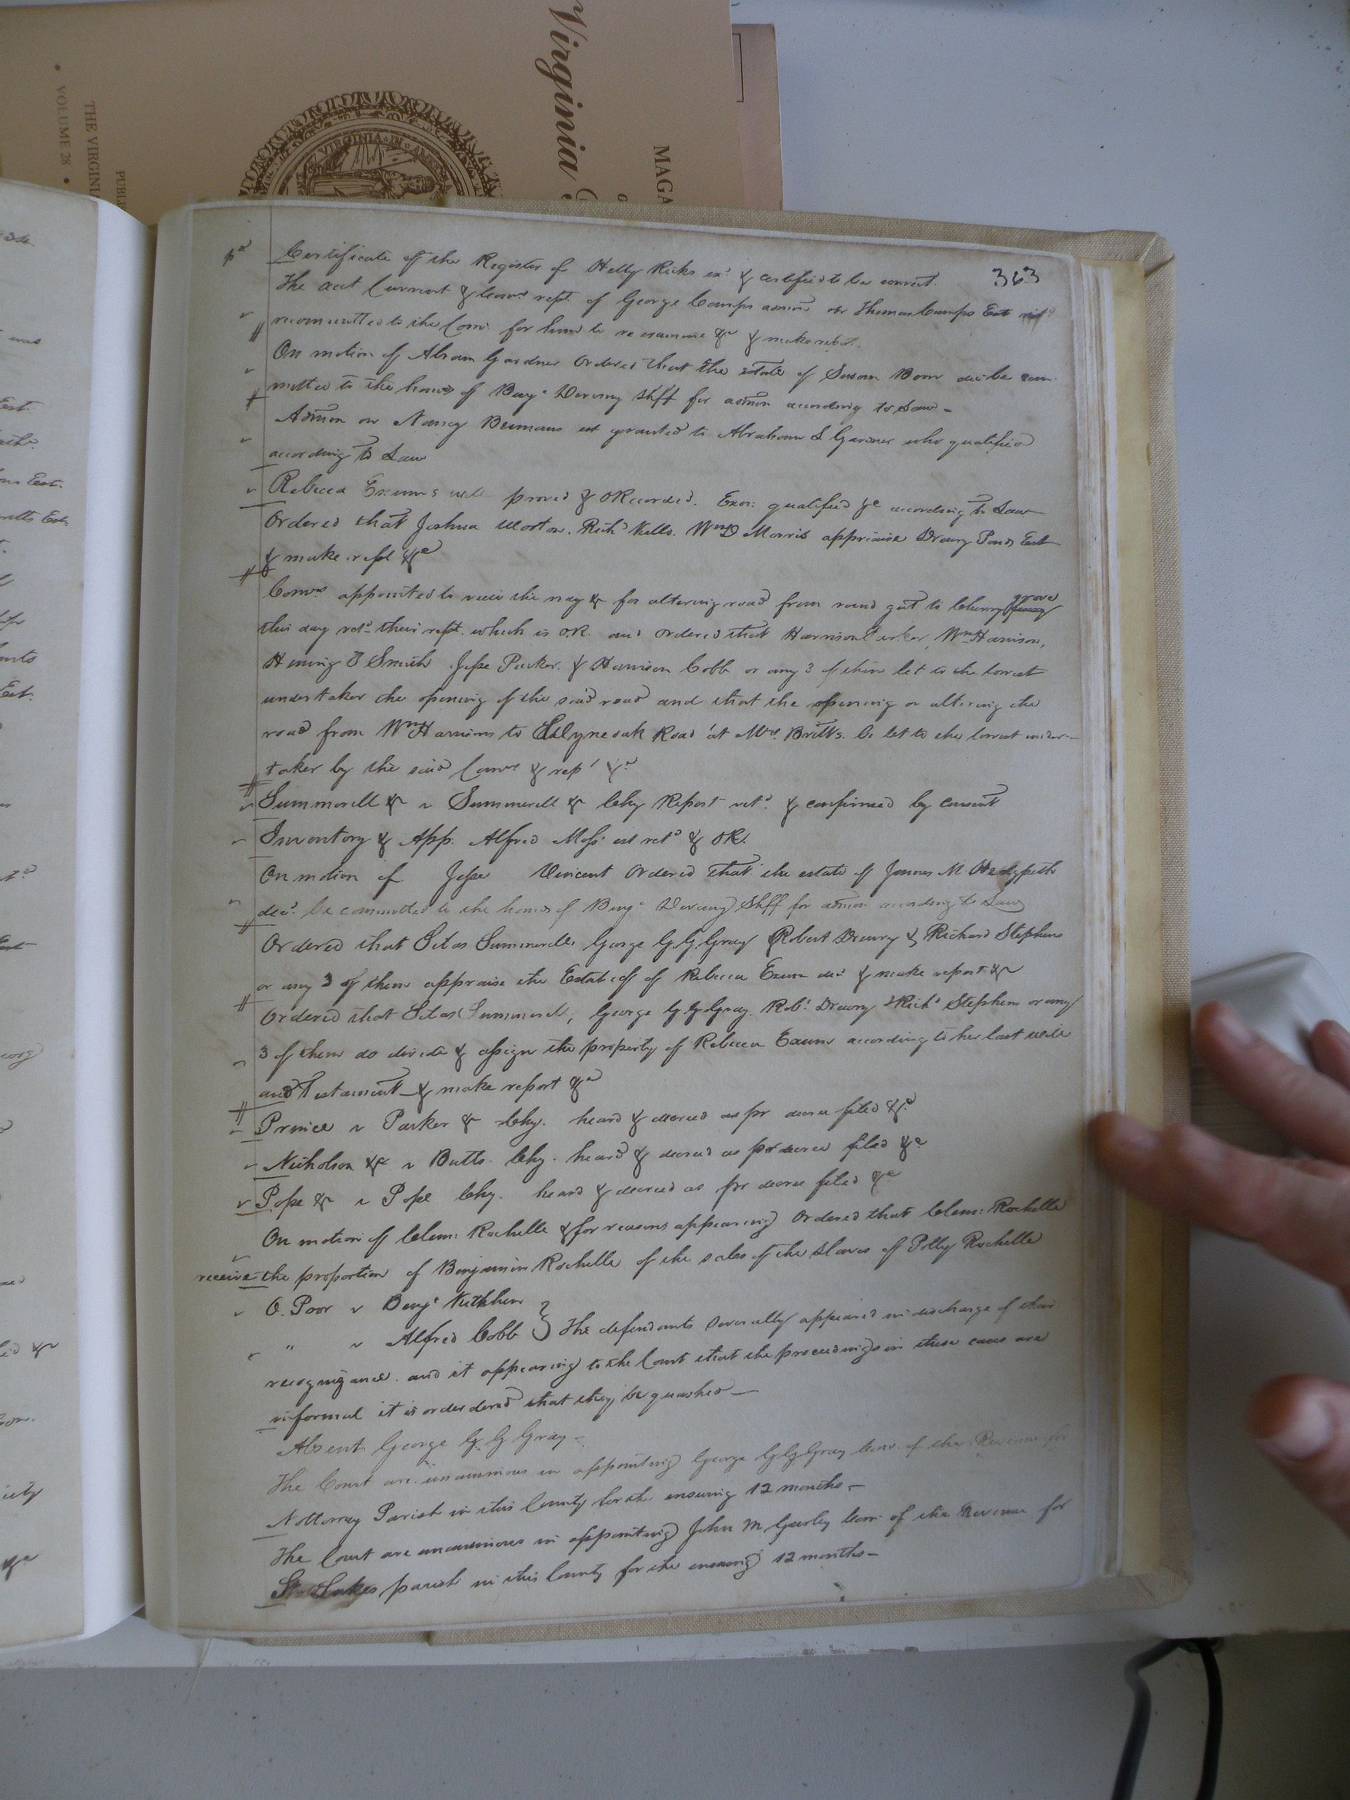 Virginia
MAGA
THE VIRGINI
VOLUME 28
PUBLI
VIRGINIA
363
pd Certificate of the Register of Hetty Ricks exd & certified to be correct.
The acct Current & Comrs rept. of George Camps admon on Thomas Camps Est
recommitted to the Comr for him to re examine &c & make rept.
On motion of Abram Gardner Ordered that the estate of Susan Boon decd be com
mitted to the hands of Benj. Devany Shff for admon according to Law -
Admon on Nancy Bermans est granted to Abraham S Gardner who qualified
according to Law
Rebecca Exums will proved & OR ecorded. Exor: qualified &c according to Law
Ordered that Joshua Worton, Richd Kello, Wm D Morris appraise Drewry Ponds Est
& make rept &c
Comrs appointed to view the way &c for altering road from round gut to Cherry grove
this day retd their rept. which is OR. and ordered that Harrison Parker, Wm Harrison,
Hening T Smith Jesse Parker. & Harrison Cobb or any 3 of them let to the lowest
undertaker the opening of the said road and that the opening or altering the
road from Wm Harrisons to road at Mrs. Britts. be let to the lowest under-
taker by the said Comrs & rept &c
Summerell &c v Summerell &c Chy Report retd. & confirmed by consent
Inventory & App. Alfred Moss est retd & OR.
On motion of Jesse Vincent Ordered that the estate of James M
decd. be committed to the hands of Benj. Devany Shff for admon according to Law
Ordered that Silas Summerell George G. G. Gray Robert Drewry & Richard Stephens
or any 3 of them appraise the Estate of Rebecca Exum decd & make report &c
Ordered that Silas Summerell, George G. G. Gray. Robt. Drewry & Richd Stephens or any
3 of them do divide & assign the property of Rebecca Exum according to her last will
and Testament & make report &c
Prince v Parker &c Chy. heard & decreed as pr decree filed &c
Nicholson &c v Butts. Chy. heard & decreed as pr decree filed &c
Pope &c v Pope Chy. heard & decreed as pr decree filed &c
On motion of Clem: Rochelle & for reasons appearing Ordered that Clem: Rochelle
receive the proportion of Benjamin Rochelle of the sales of the slaves of Polly Rochelle
O. Poor v Benj.
" v Alfred Cobb } The defendants severally appeared in discharge of their
recognizance. and it appearing to the Court that the proceedings in these cases are
informal it is orderdered that they be quashed —
Absent George G. G. Gray -
The Court are unanimous in appointing George G. G. Gray Comr. of the Revenue for
Nottoway Parish in this County for the ensuing 12 months -
The Court are unanimous in appointing John M Gurley Comr of the Revenue for
St Lukes parish in this County for the ensuing 12 months -